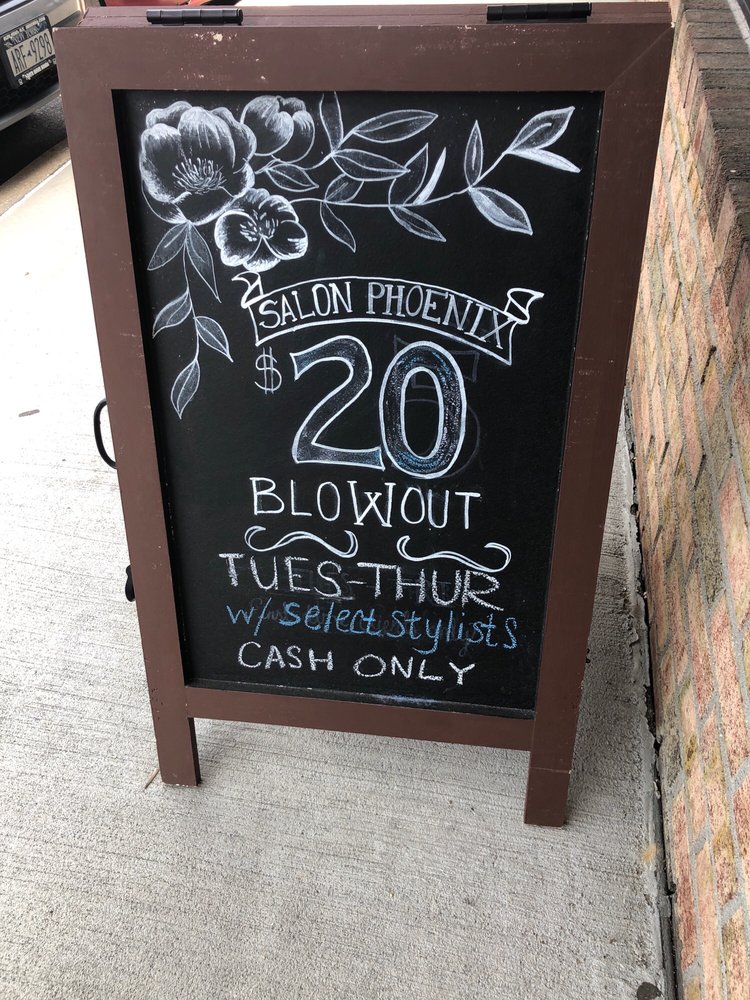 SALON PHOENIX
$20
BLOWOUT
TUES-THUR
w/ select stylists
CASH ONLY